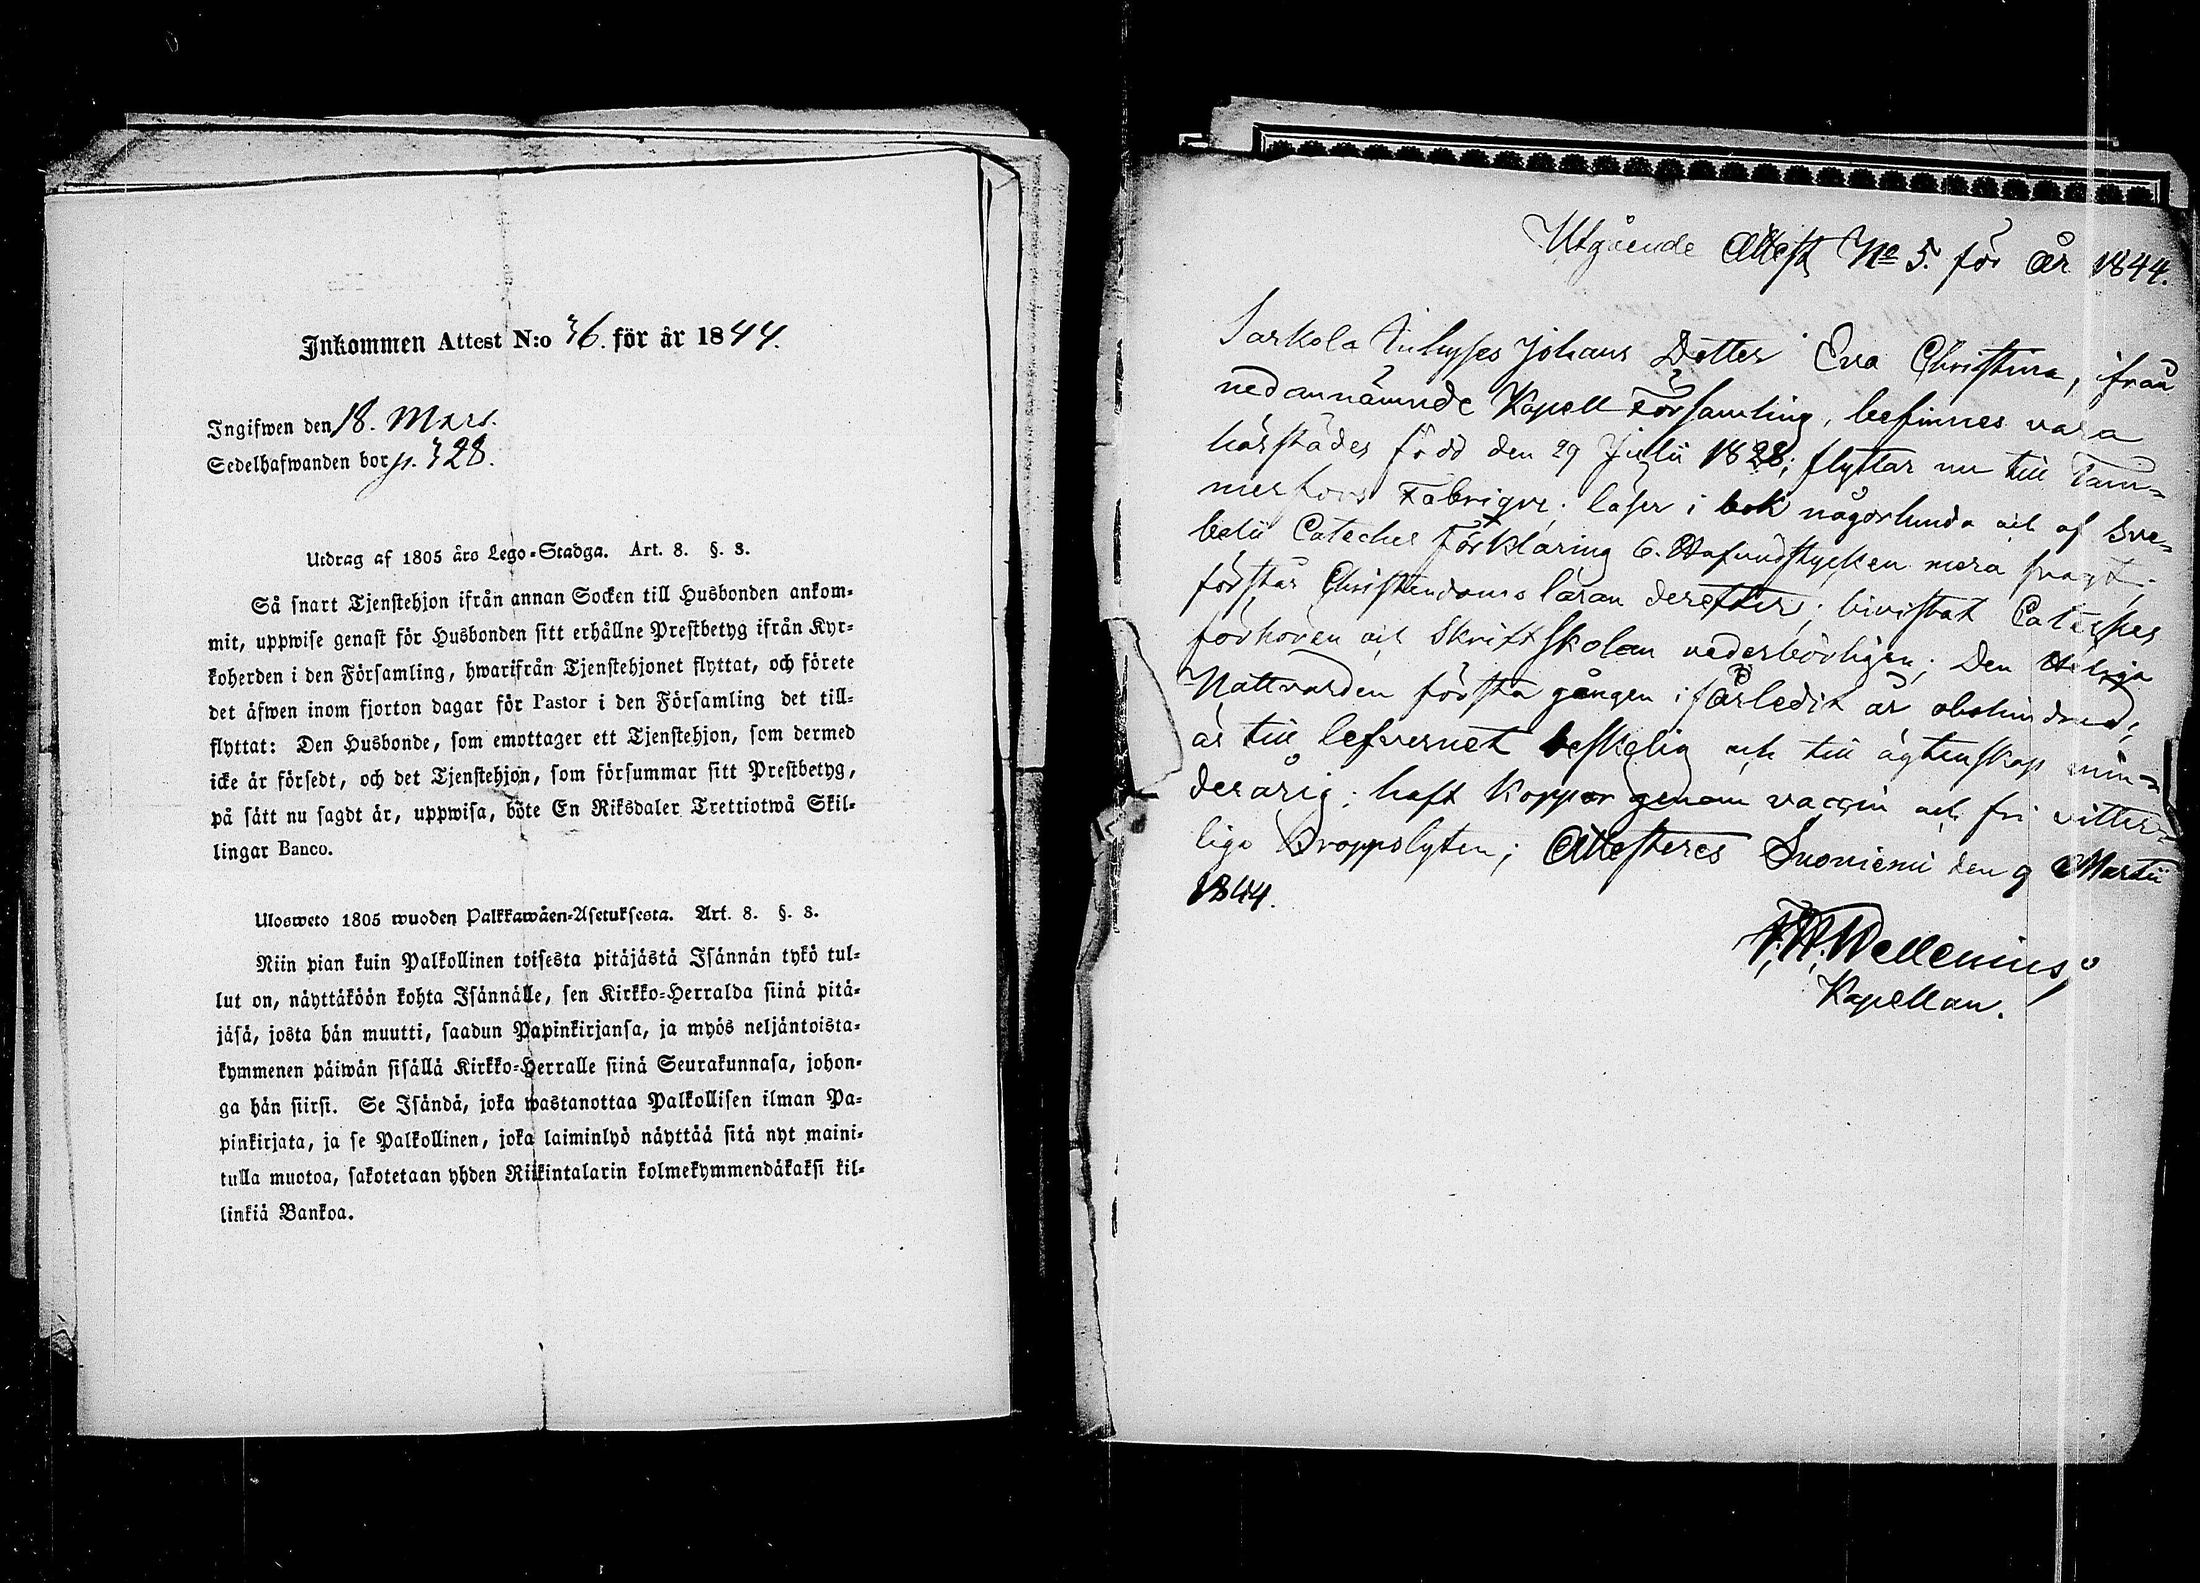 Inkommen Attest N:o 36. för år 1844.
Ingifwen den 18. Mars.
Sedelhafwanden bor p. 328.
Utdrag af 1805 års Lego-Stadga. Art. 8. §. 3.
Så snart Tjenstehjon ifrån annan Socken till Husbonden ankom-
mit, uppwise genast för Husbonden sitt erhållne Prestbetyg ifrån Kyr-
koherden i den Församling, hwarifrån Tjenstehjonet flyttat, och förete
det äfwen inom fjorton dagar för Pastor i den Församling det till-
flyttat: Den Husbonde, som emottager ett Tjenstehjon, som dermed
icke är försedt, och det Tjenstehjon, som försummar sitt Prestbetyg,
på sätt nu sagdt är, uppwisa, böte En Riksdaler Trettiotwå Skil-
lingar Banco.
Ulosweto 1805 wuoden Palkkawäen-Asetuksesta. Art. 8. §. 3.
Niin pian kuin Palkollinen toisesta pitäjästä Isännän tykö tul-
lut on, näyttäköön kohta Isännälle, sen Kirkko-Herralda siinä pitä-
jäsä, josta hän muutti, saadun Papinkirjansa, ja myös neljäntoista-
kymmenen päiwän sisällä Kirkko-Herralle siinä Seurakunnasa, johon-
ga hän siirsi. Se Isändä, joka wastanottaa Palkollisen ilman Pa-
pinkirjata, ja se Palkollinen, joka laiminlyö näyttää sitä nyt maini-
tulla muotoa, sakotetaan yhden Riikintalarin kolmekymmendäkaksi kil-
linkiä Bankoa.
Utgående Attest No 5. för år 1844.
Sarkola Inhyses Johans Dotter Eva Christina, ifrån
nedannämnde Kapell Församling, befinnes vara
härstädes född den 29 Julii 1828; flyttar nu till Tam-
merfors Fabrique; läser i bok någorlunda och af Sve-
belii Cateches Förklaring 6. Hufvudstycken mera svagt;
förstår Christendoms läran derefter; bivistat Cateches
förhören och Skriftskolan vederbörligen; Den Heliga
Nattvarden första gången i förledit år
är till lefvernet beskelig och till ägtenskap min-
derårig; haft Koppor genom vaccin och fri vitter-
liga Kroppslyten; Attesteres Suoniemi den 9 Martii
1844.
Wellenius,
Kapellan.